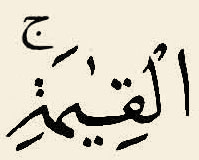 الْقِيٰمَةِۚ